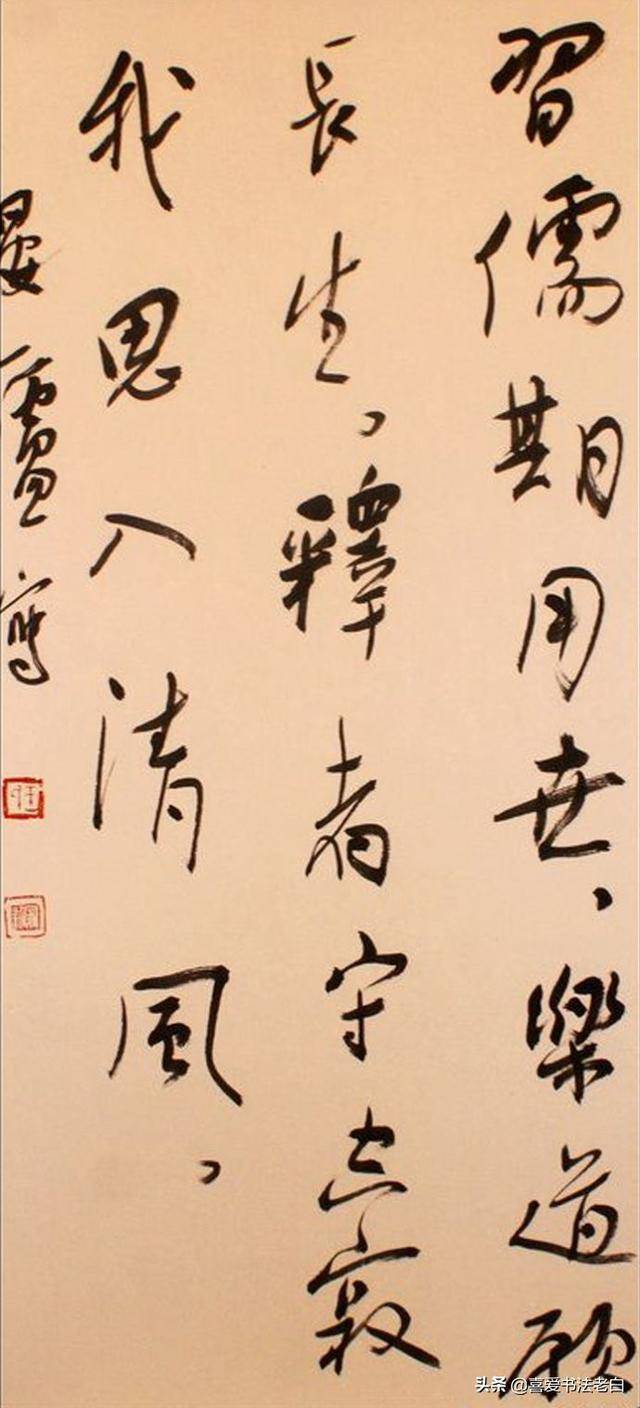 習儒期用世、樂道願
長生，釋者守空寂
我思入清風。
晏廬寫
头条 @喜爱书法老白